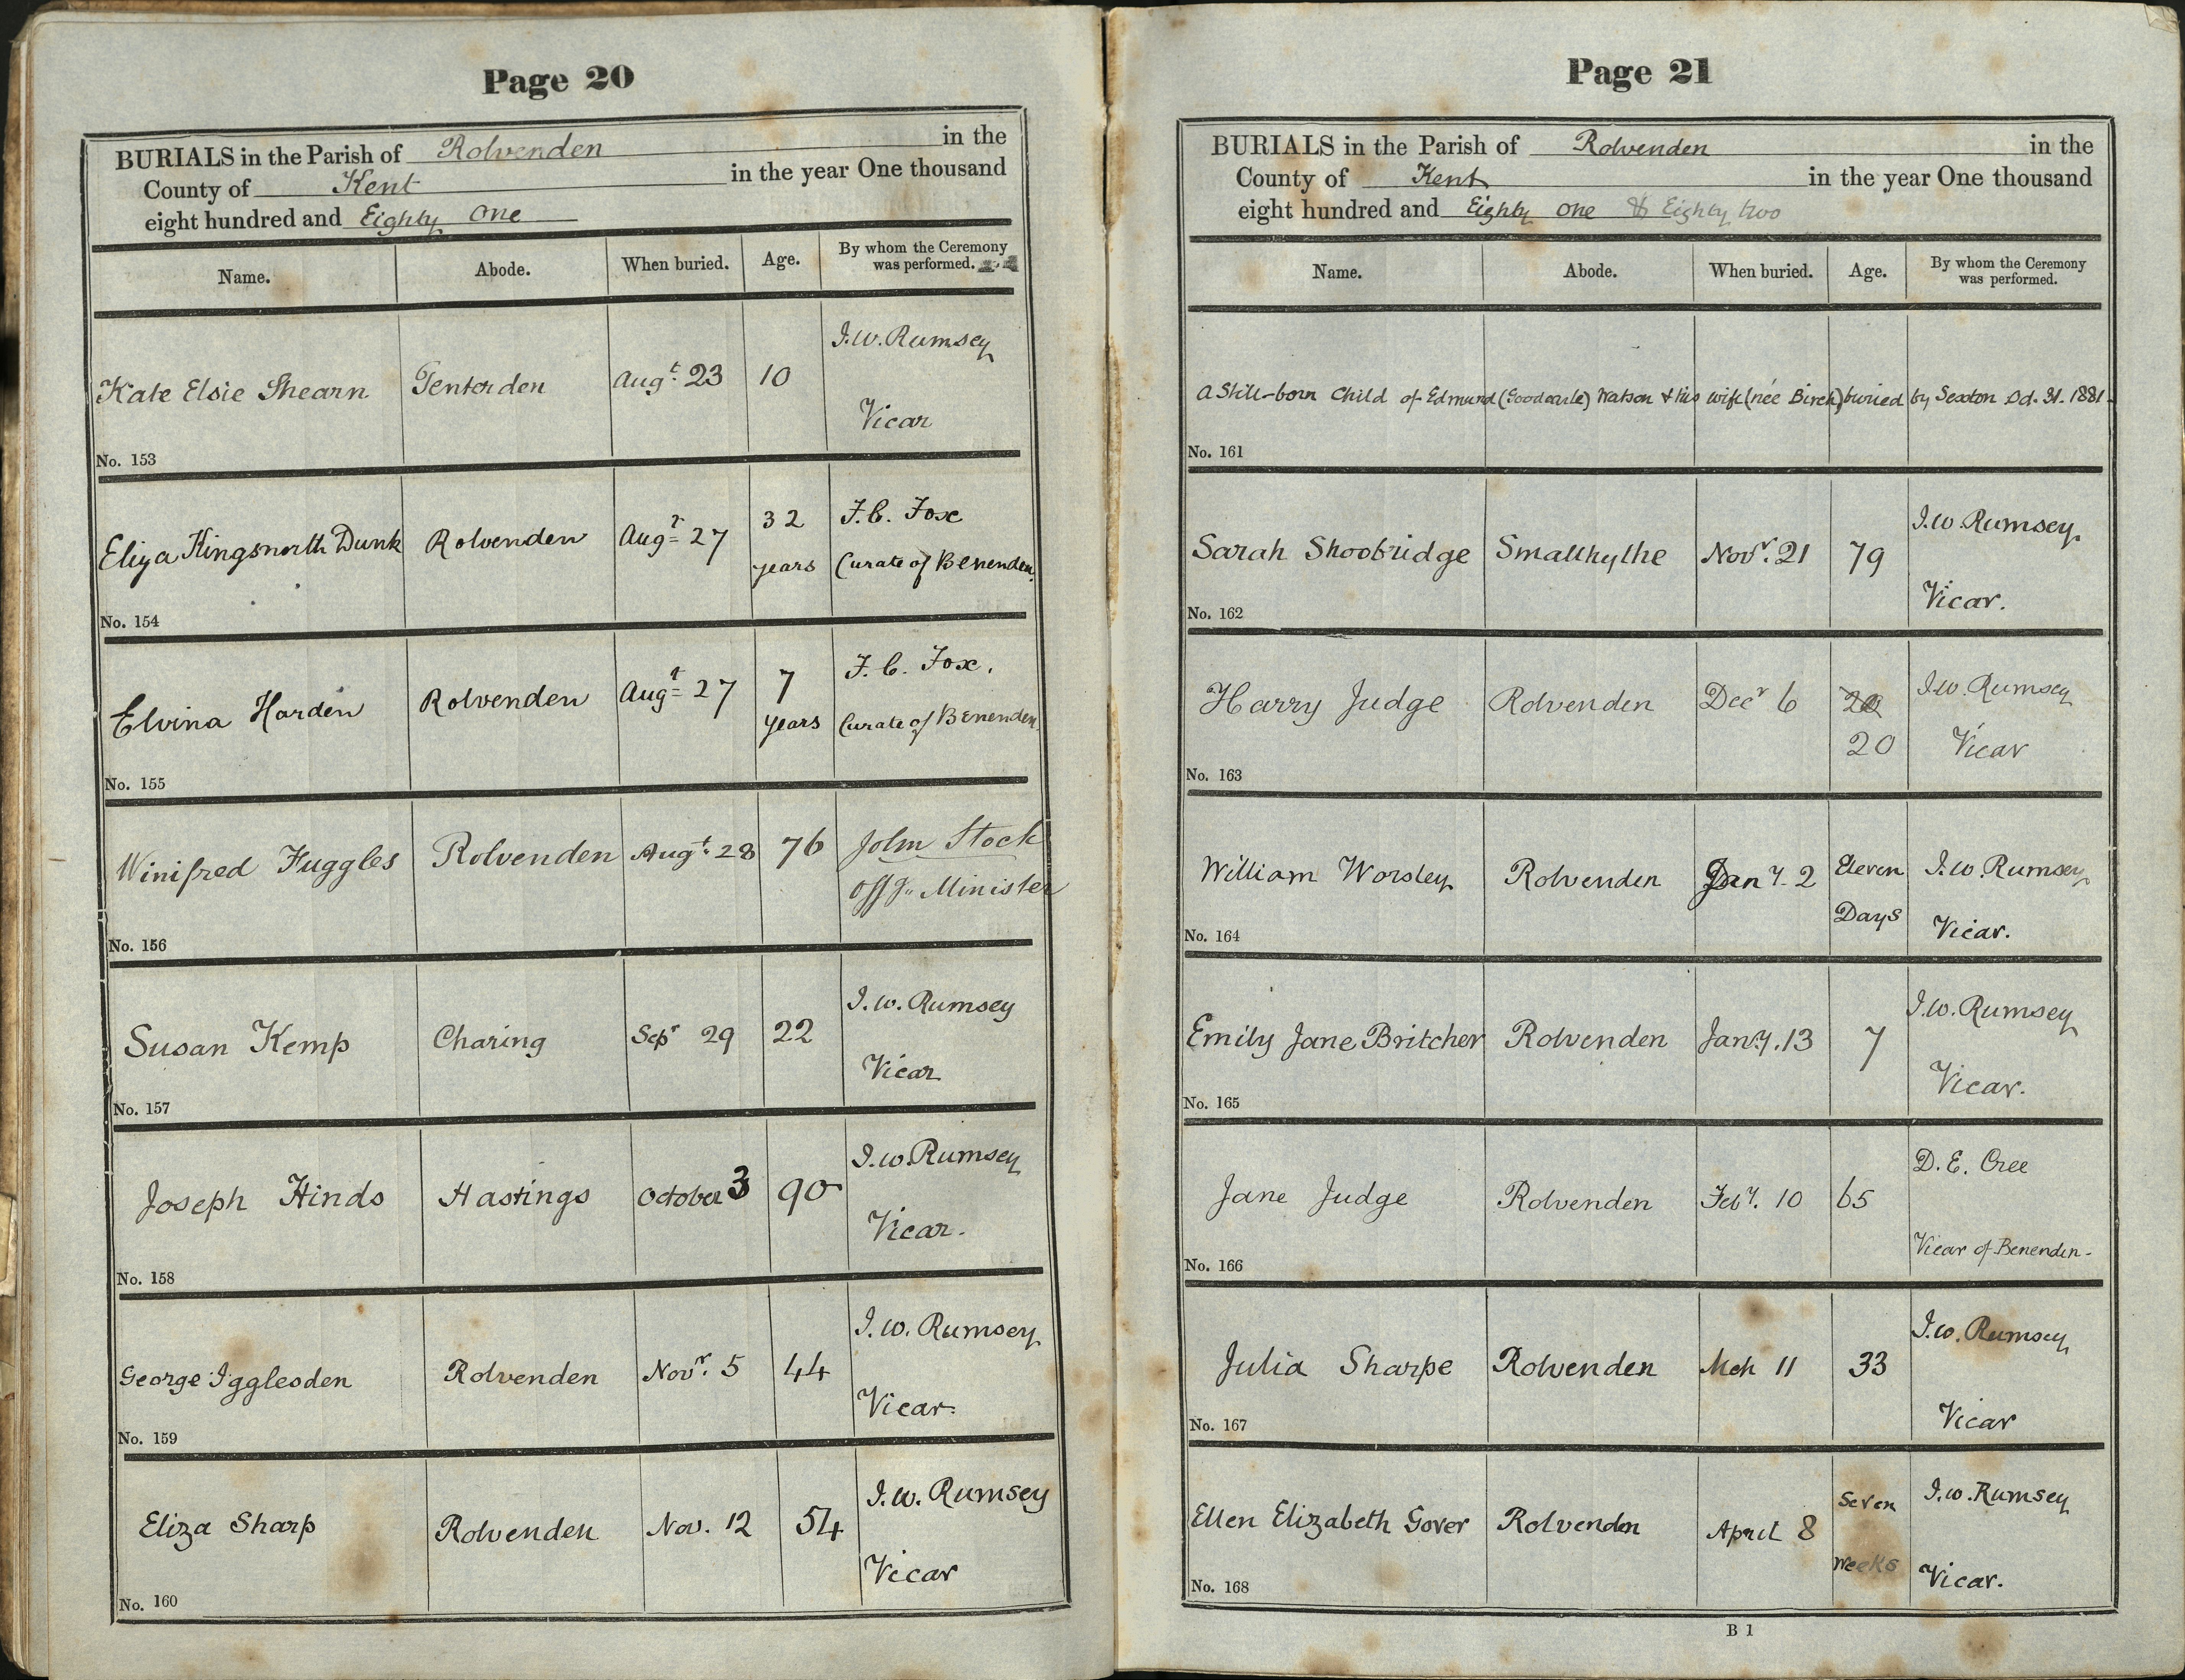 Page 20
BURIALS in the Parish of Rolvenden in the
County of Kent in the year One thousand
eight hundred and Eighty One
Name. Abode. When buried. Age. By whom the Ceremony was performed.
Kate Elsie Shearn Tenterden Augt. 23 10 I.W. Rumsey
Vicar
No. 153
Eliza Kingsnorth Dunk Rolvenden Augt 27 32 years F.C. Fox
Curate of Benenden.
No. 154
Elvina Harden Rolvenden Augt 27 7 years F.C. Fox.
Curate of Benenden.
No. 155
Winifred Fuggles Rolvenden Augt. 28 76 John Stock
Offg. Minister
No. 156
Susan Kemp Charing Sepr 29 22 I.W. Rumsey
Vicar
No. 157
Joseph Hinds Hastings October 3 90 I.W. Rumsey
Vicar.
No. 158
George Igglesden Rolvenden Novr. 5 44 I.W. Rumsey
Vicar.
No. 159
Eliza Sharp Rolvenden Nov. 12 54 I.W. Rumsey
Vicar
No. 160
Page 21
BURIALS in the Parish of Rolvenden in the
County of Kent in the year One thousand
eight hundred and Eighty One & Eighty two
Name. Abode. When buried. Age. By whom the Ceremony was performed.
A Still-born Child of Edmund Watson & his wife (née Birch) buried by Sexton Oct. 31. 1881.
No. 161
Sarah Shoobridge Smallhythe Novr. 21 79 I.W. Rumsey.
Vicar.
No. 162
Harry Judge Rolvenden Decr 6 20 I.W. Rumsey
Vicar
No. 163
William Worsley Rolvenden Jany. 2 Eleven Days I.W. Rumsey
Vicar.
No. 164
Emily Jane Britcher Rolvenden Jany. 13 7 I.W. Rumsey
Vicar.
No. 165
Jane Judge Rolvenden Feby. 10 65 D.E. Cree
Vicar of Benenden.
No. 166
Julia Sharpe Rolvenden Mch 11 33 I.W. Rumsey
Vicar
No. 167
Ellen Elizabeth Gover Rolvenden April 8 Seven weeks I.W. Rumsey
Vicar.
No. 168
B 1